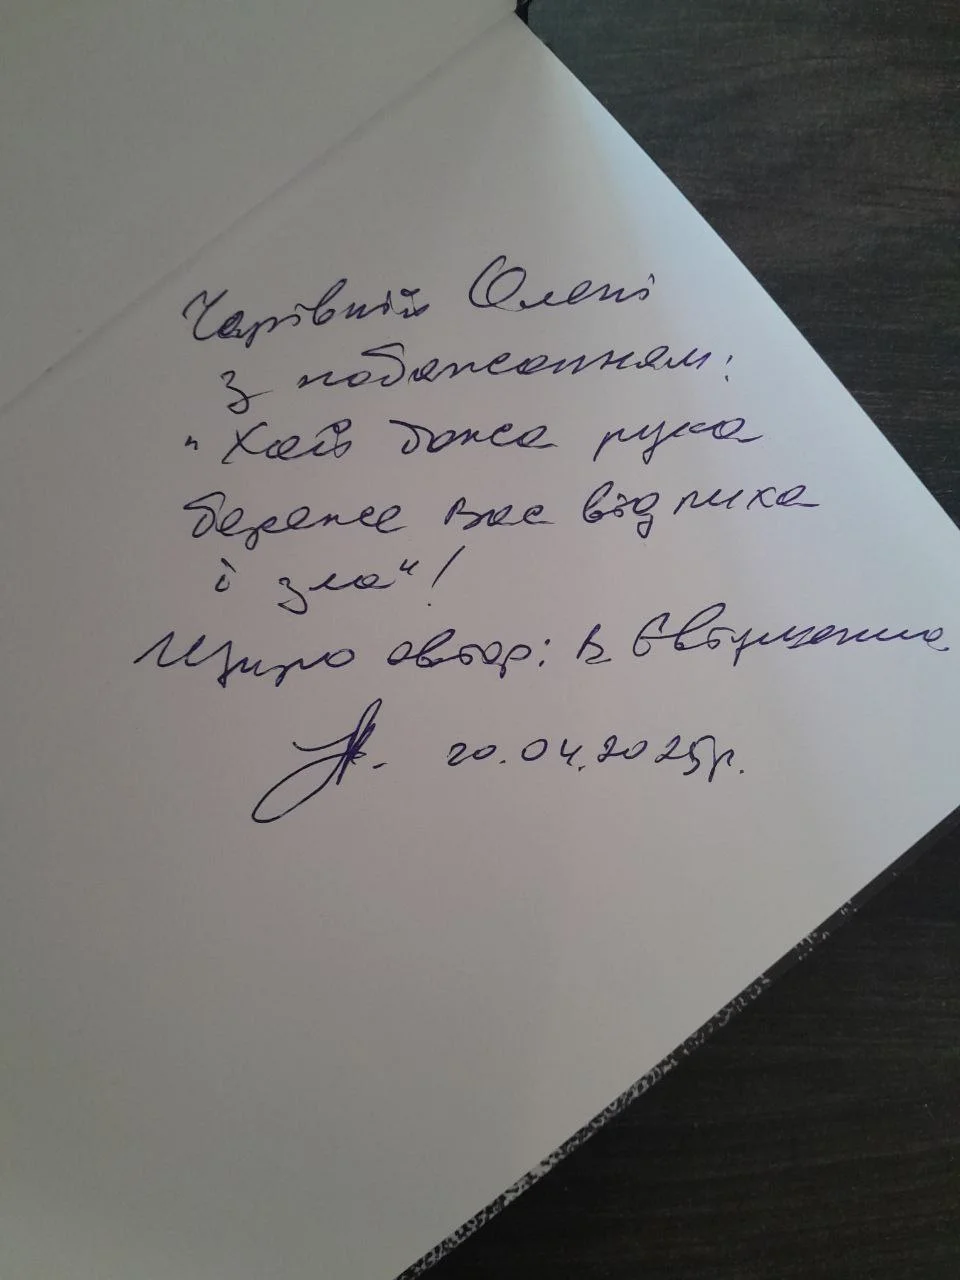 Чарівній Олені
з побажанням:
"Хай божа рука
береже Вас від лиха
і зла"!
Щиро автор: В
20.04.2025р.